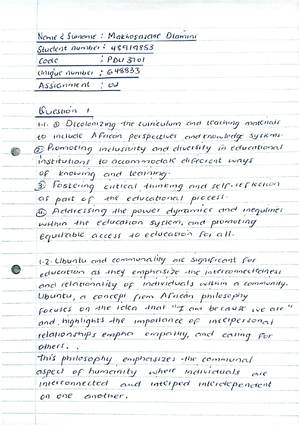 Name & Surname : Makhosazane Dlamini
Student number : 48919853
Code : PDU 3701
Unique number : 648833
Assignment : 02
Question 1
1.1. ① Decolonizing the curriculum and teaching materials
to include African perspectives and knowledge systems.
② Promoting inclusivity and diversity in educational
institutions to accommodate different ways
of knowing and learning.
③ Fostering critical thinking and self-reflection
as part of the educational process.
④ Addressing the power dynamics and inequities
within the education system, and promoting
equitable access to education for all.
1.2. Ubuntu and communality are significant for
education as they emphasise the interconnectedness
and relationality of individuals within a community.
Ubuntu, a concept from African philosophy
focuses on the idea that "I am because we are"
and highlights the importance of interpersonal
relationships empha empathy, and caring for
others.
This philosophy emphasizes the communal
aspect of humanity where individuals are
interconnected and interped interdependent
on one another.